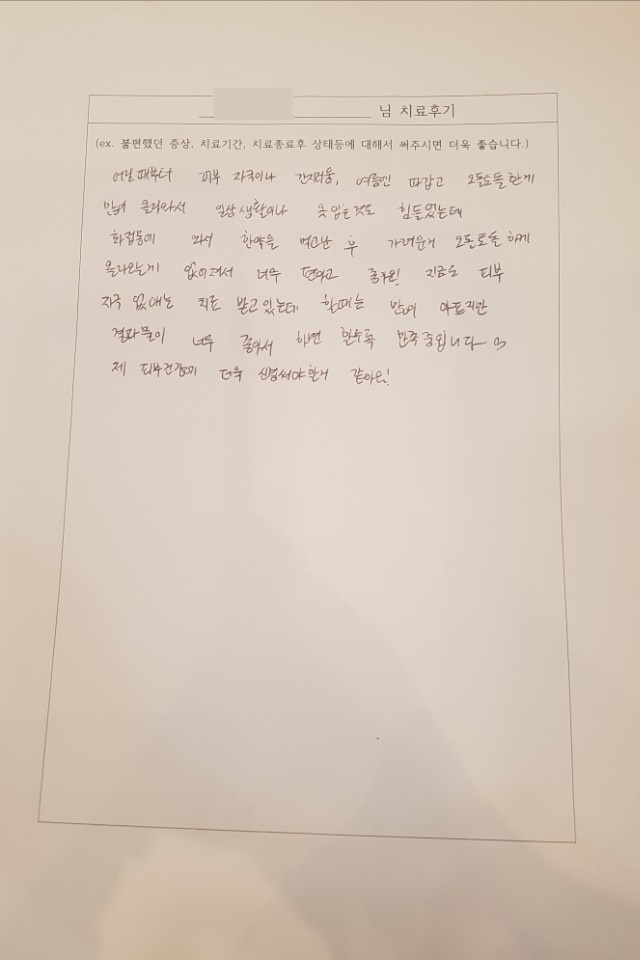 님 치료후기
(ex. 불편했던 증상, 치료기간, 치료종료후 상태등에 대해서 써주시면 더욱 좋습니다.)
어릴때부터 피부 자극이나 간지러움, 여름엔 따갑고 오돌도돌한게
많이 올라와서 일상생활이나 옷 입는것도 힘들었는데
와서 한약을 먹고난 후 가려운게 오돌도돌하게
올라오는게 없어져서 너무 편하고 좋아요! 지금도 피부
자극 없애는 치료 받고있는데 할때는 많이 아프지만
결과물이 너무 좋아서 하면 할수록 만족중입니다~
제 피부건강에 더욱 신경써야할거 같아요!